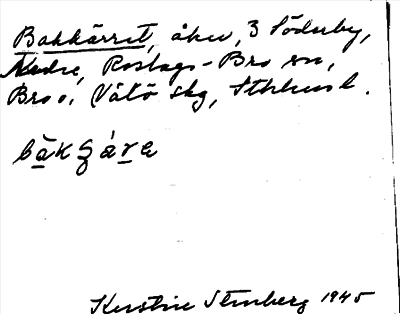 Bakkärret, åker, 3 Söderby,
Nedre, Roslags-Bro sn,
Bro o. Vätö skg, Sthlms l.
bàkçá̀ra
Kerstin Stenberg 1945